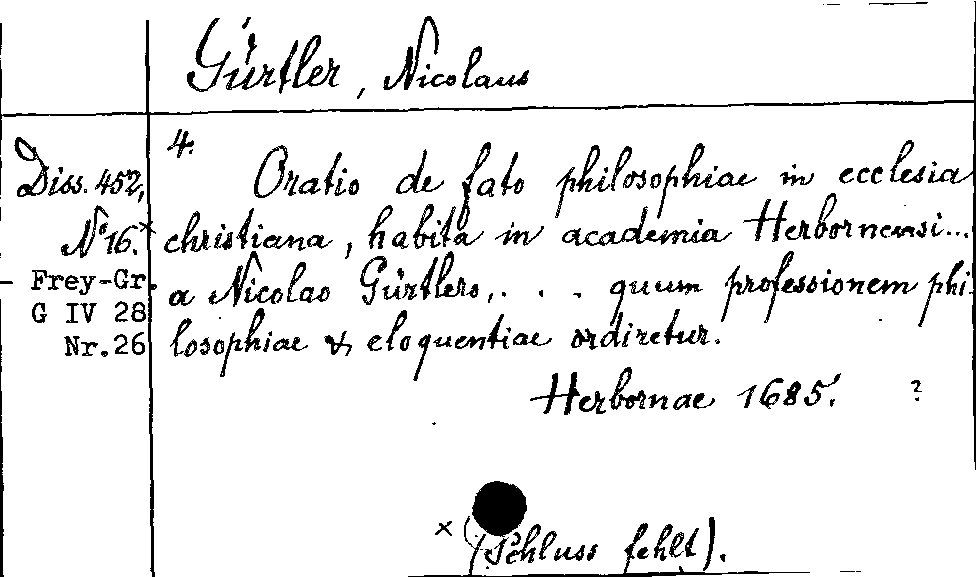 Gürtler, Nicolaus
Diss. 452,
No 16.x
Frey-Gr.
G IV 28
Nr.26
4.
Oratio de fato philosophiae in ecclesia
christiana, habita in academia Herbornensi...
a Nicolao Gürtlero, . . . quum professionem phi-
losophiae & eloquentiae ordiretur.
Herbornae 1685. ?
x (Schluss fehlt).